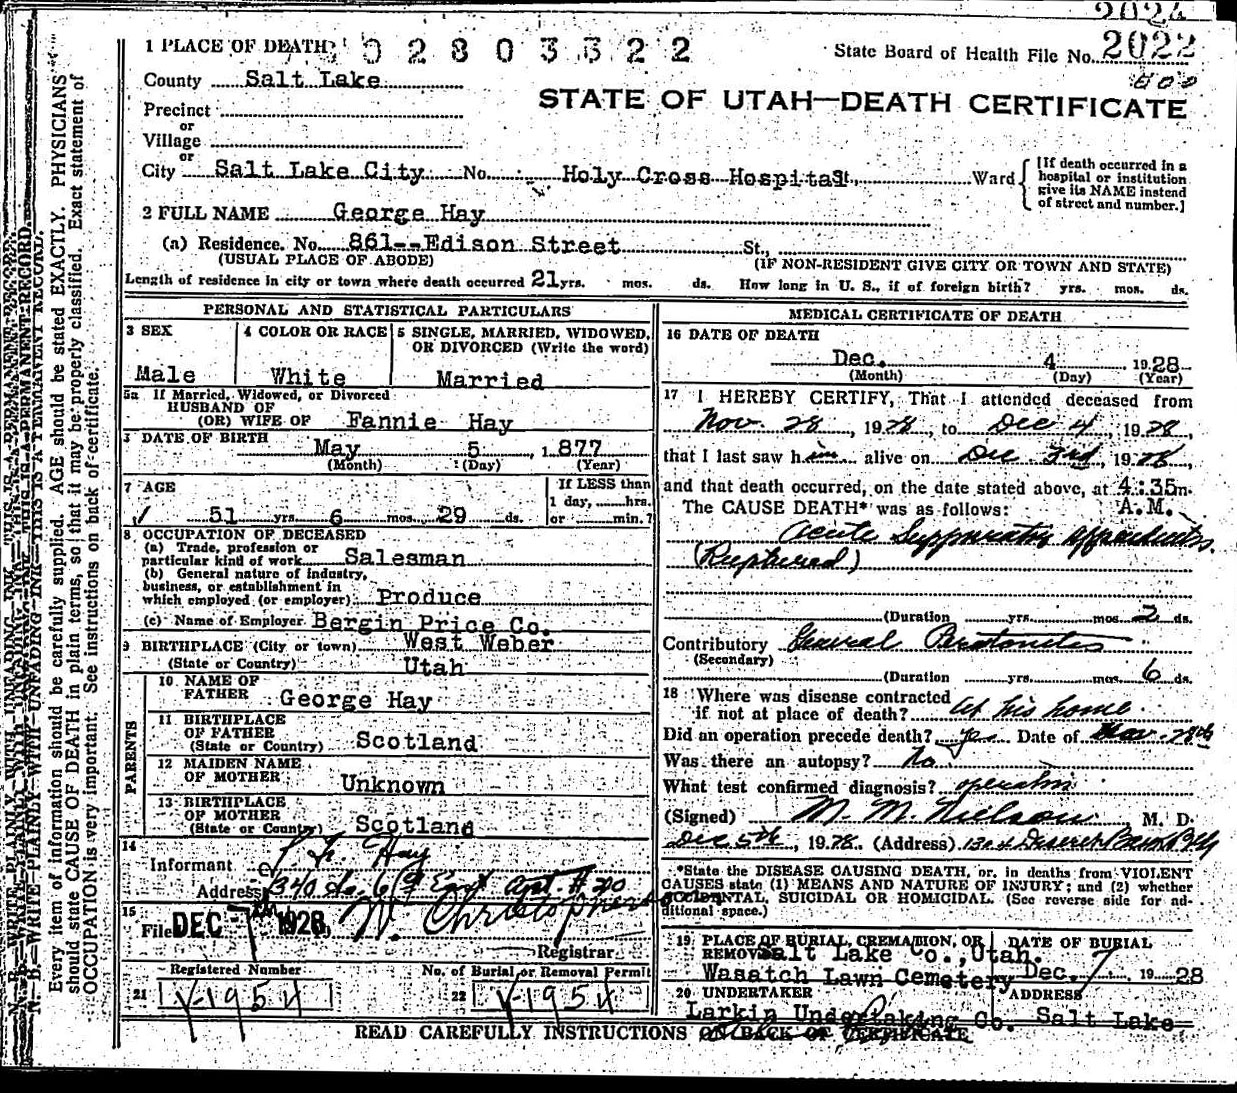 2024
1 PLACE OF DEATH 02803322 State Board of Health File No. 2022
County Salt Lake
STATE OF UTAH—DEATH CERTIFICATE
Precinct
or
Village
or
City Salt Lake City No. Holy Cross Hospital St., Ward
[If death occurred in a hospital or institution give its NAME instead of street and number.]
2 FULL NAME George Hay
(a) Residence. No. 861--Edison Street St.,
(USUAL PLACE OF ABODE) (IF NON-RESIDENT GIVE CITY OR TOWN AND STATE)
Length of residence in city or town where death occurred 21 yrs. mos. ds. How long in U. S., if of foreign birth? yrs. mos. ds.
PERSONAL AND STATISTICAL PARTICULARS
3 SEX
Male
4 COLOR OR RACE
White
5 SINGLE, MARRIED, WIDOWED, OR DIVORCED (Write the word)
Married
5a If Married, Widowed, or Divorced
HUSBAND OF
(OR) WIFE OF Fannie Hay
DATE OF BIRTH
May 5, 1877
(Month) (Day) (Year)
7 AGE
51 yrs. 6 mos. 29 ds.
If LESS than
1 day, hrs.
or min.?
8 OCCUPATION OF DECEASED
(a) Trade, profession or
particular kind of work Salesman
(b) General nature of industry,
business, or establishment in
which employed (or employer) Produce
(c) Name of Employer Bergin Price Co.
9 BIRTHPLACE (City or town) West Weber
(State or Country) Utah
PARENTS
10 NAME OF
FATHER George Hay
11 BIRTHPLACE
OF FATHER
(State or Country) Scotland
12 MAIDEN NAME
OF MOTHER Unknown
13 BIRTHPLACE
OF MOTHER
(State or Country) Scotland
14
Informant Hay
Address 340 So. 6th East Apt #20
15
Filed DEC 7 1928 W. Christopherson
Registrar
Registered Number
21 V-1954
No. of Burial or Removal Permit
22 V-1954
MEDICAL CERTIFICATE OF DEATH
16 DATE OF DEATH
Dec. 4 1928
(Month) (Day) (Year)
17 I HEREBY CERTIFY, That I attended deceased from
Nov. 28, 1928, to Dec 4, 1928,
that I last saw him alive on Dec 3rd, 1928,
and that death occurred, on the date stated above, at 4:35 m.
The CAUSE DEATH* was as follows: A.M.
Acute Suppurative appendicitis
(Ruptured)
(Duration yrs. mos. 2 ds.
Contributory General Peritonitis
(Secondary)
(Duration yrs. mos. 6 ds.
18 Where was disease contracted
if not at place of death? At his home
Did an operation precede death? yes Date of Nov 28th
Was there an autopsy? No
What test confirmed diagnosis? operation
(Signed) M. M. Nielson M. D.
Dec 5th, 1928. (Address)
*State the DISEASE CAUSING DEATH, or, in deaths from VIOLENT
CAUSES state (1) MEANS AND NATURE OF INJURY; and (2) whether
ACCIDENTAL, SUICIDAL OR HOMICIDAL. (See reverse side for ad-
ditional space.)
19 PLACE OF BURIAL, CREMATION, OR
REMOVAL Salt Lake Co., Utah.
Wasatch Lawn Cemetery
DATE OF BURIAL
Dec. 7 1928
20 UNDERTAKER
Larkin Undertaking Co.
ADDRESS
Salt Lake
READ CAREFULLY INSTRUCTIONS ON BACK OF CERTIFICATE
N. B.—WRITE PLAINLY WITH UNFADING INK—THIS IS A PERMANENT RECORD.
Every item of information should be carefully supplied. AGE should be stated EXACTLY. PHYSICIANS
should state CAUSE OF DEATH in plain terms, so that it may be properly classified. Exact statement of
OCCUPATION is very important. See instructions on back of certificate.